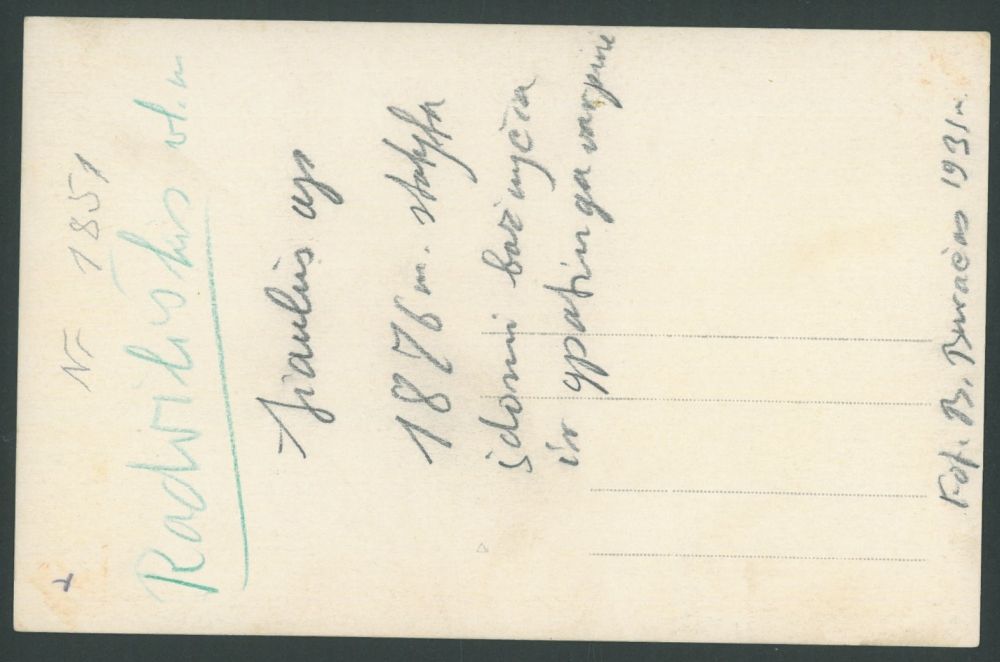 Nr 1851
Radviliškis vl. m
Šiaulių ap
1876 m. statyta
įdomi bažnyčia
ir ypatinga varpinė
Fot. B. Buračas 1931 m.